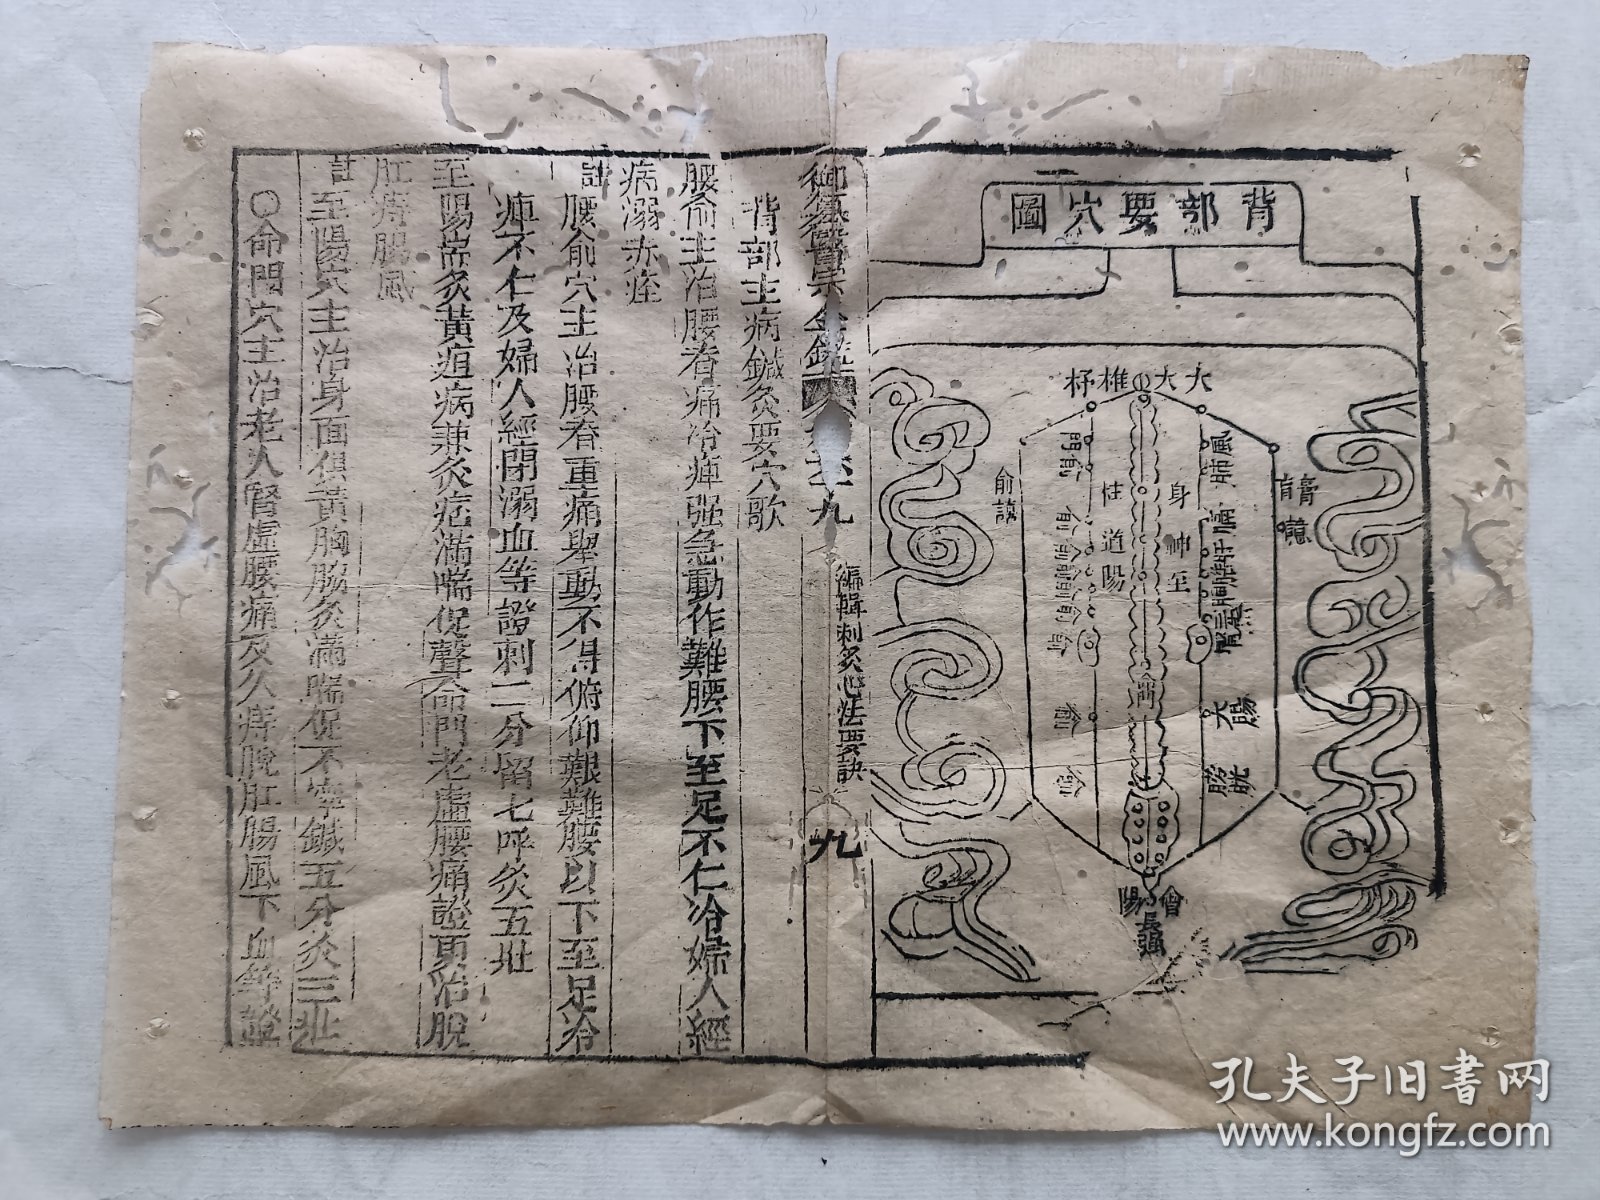 背部要穴圖
大杼
大椎
大
風
肺
膏
肓
譩
譆
俞
門
俞
身
柱
神
道
至
陽
會
陽
長強
御纂醫宗金鑑
九
編輯刺灸心法要訣
九
背部主病鍼灸要穴歌
腰俞主治腰脊痛冷痺強急動作難腰下至足不仁冷婦人經
病溺赤痊
註腰俞穴主治腰脊重痛舉動不得俯仰艱難腰以下至足冷
痺不仁及婦人經閉溺血等證刺二分留七呼灸五壯
至陽耑灸黃疸病兼灸痞滿喘促聲命門老虛腰痛證更治脫
肛痔腸風
註至陽穴主治身面俱黃胸脇灸滿喘促不寧鍼五分灸三壯
○命門穴主治老人腎虛腰痛及久痔脫肛腸風下血等證
孔夫子旧书网
www.kongfz.com